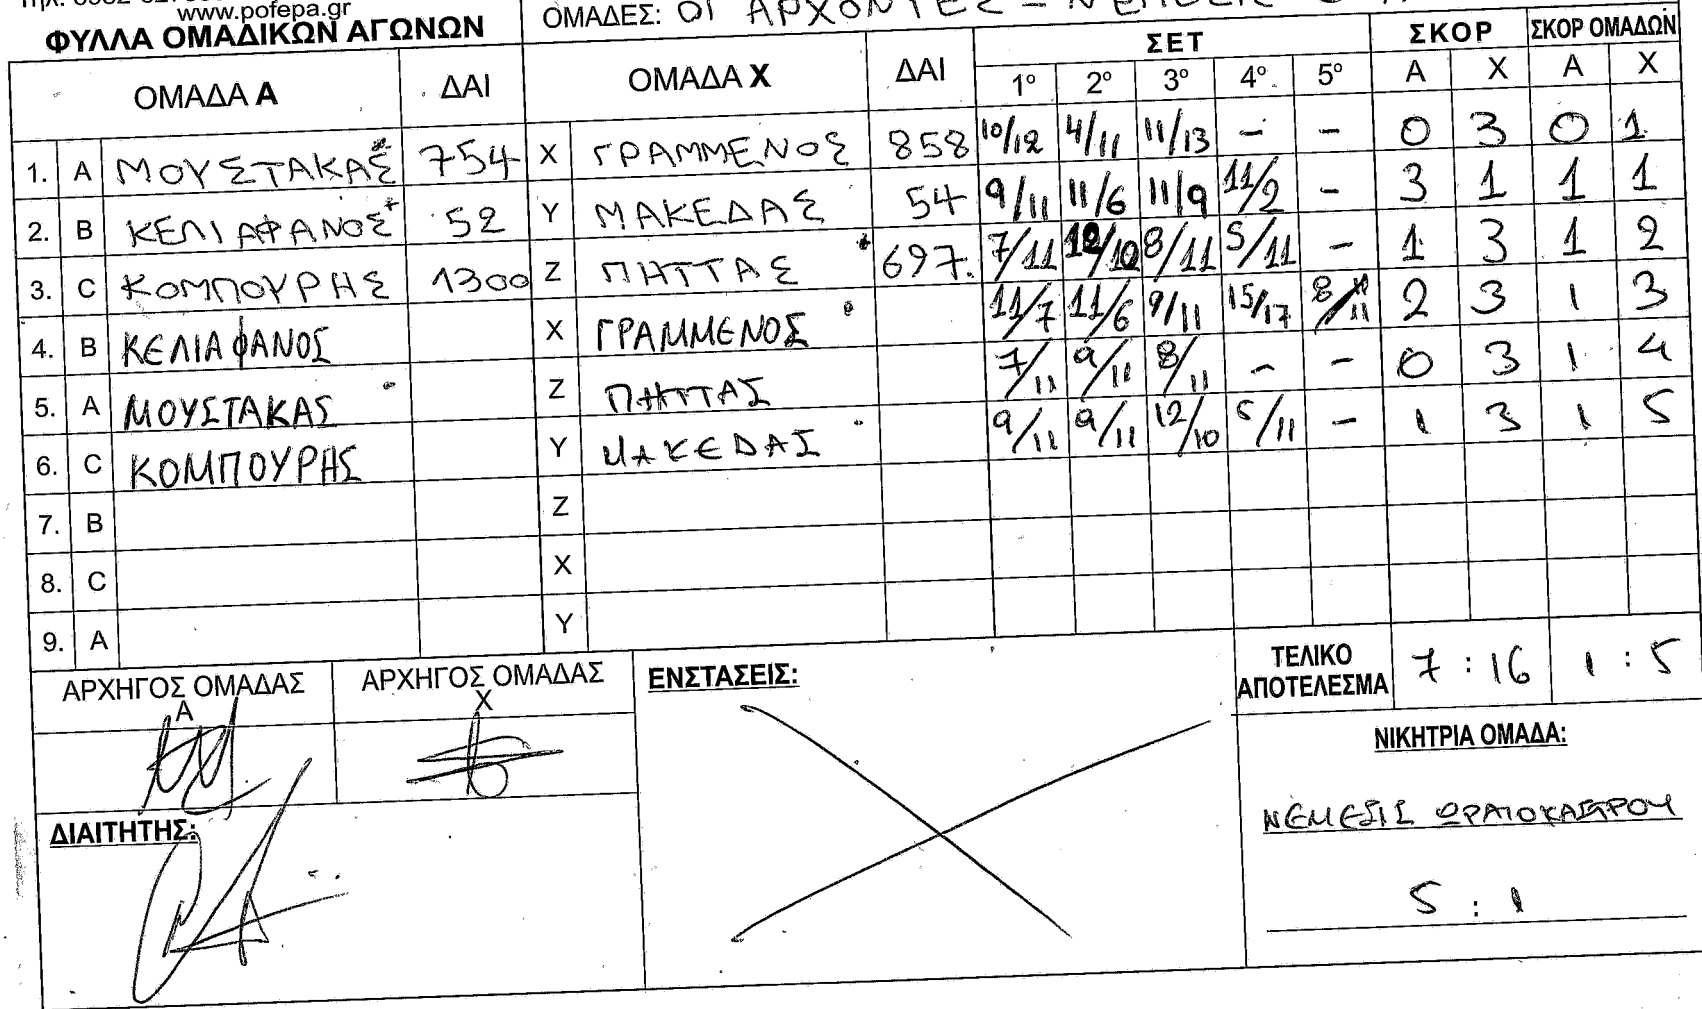 www.pofepa.gr
ΦΥΛΛΑ ΟΜΑΔΙΚΩΝ ΑΓΩΝΩΝ
ΟΜΑΔΕΣ: ΟΙ ΑΡΧΟΝΤΕΣ -
ΟΜΑΔΑ Α ΔΑΙ ΟΜΑΔΑ Χ ΔΑΙ ΣΕΤ ΣΚΟΡ ΣΚΟΡ ΟΜΑΔΩΝ
1ο 2ο 3ο 4ο 5ο Α Χ Α Χ
1. Α ΜΟΥΣΤΑΚΑΣ 754 Χ ΓΡΑΜΜΕΝΟΣ 858 10/12 4/11 11/13 - - 0 3 0 1
2. Β ΚΕΛΙΑΦΑΝΟΣ 52 Υ ΜΑΚΕΔΑΣ 54 9/11 11/6 11/9 11/2 - 3 1 1 1
3. C ΚΟΜΠΟΥΡΗΣ 1300 Ζ ΠΗΤΤΑΣ 697. 7/11 12/10 8/11 5/11 - 1 3 1 2
4. Β ΚΕΛΙΑΦΑΝΟΣ Χ ΓΡΑΜΜΕΝΟΣ 11/7 11/6 9/11 15/17 8/11 2 3 1 3
5. Α ΜΟΥΣΤΑΚΑΣ Ζ ΠΗΤΤΑΣ 7/11 9/11 8/11 - - 0 3 1 4
6. C ΚΟΜΠΟΥΡΗΣ Υ ΜΑΚΕΔΑΣ 9/11 9/11 12/10 5/11 - 1 3 1 5
7. Β Ζ
8. C Χ
9. Α Υ
ΑΡΧΗΓΟΣ ΟΜΑΔΑΣ Α
ΑΡΧΗΓΟΣ ΟΜΑΔΑΣ Χ
ΕΝΣΤΑΣΕΙΣ:
ΤΕΛΙΚΟ ΑΠΟΤΕΛΕΣΜΑ 7 : 16 1 : 5
ΔΙΑΙΤΗΤΗΣ:
ΝΙΚΗΤΡΙΑ ΟΜΑΔΑ:
ΝΕΜΕΣΙΣ ΩΡΑΙΟΚΑΣΤΡΟΥ
5 : 1